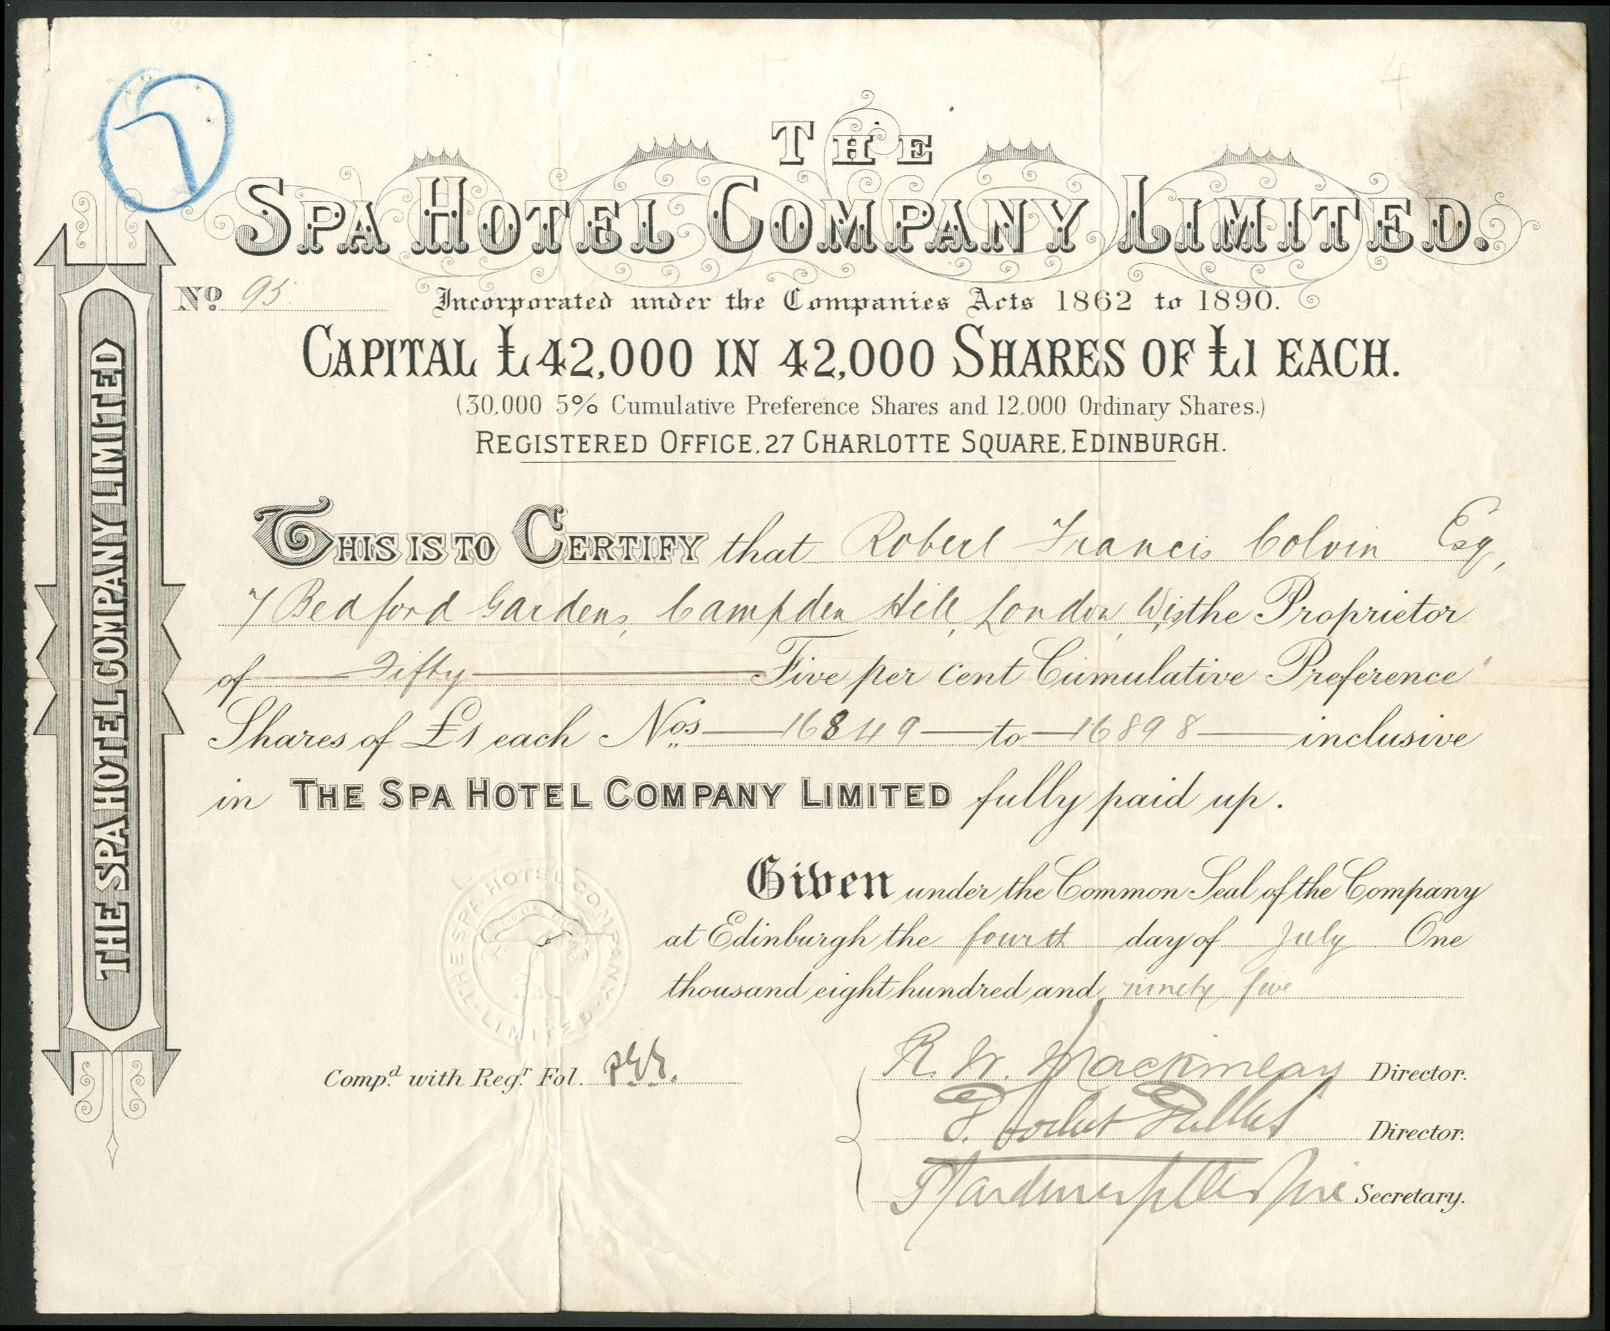 7
THE
SPA HOTEL COMPANY LIMITED.
No. 95.
Incorporated under the Companies Acts 1862 to 1890.
CAPITAL £42,000 IN 42,000 SHARES OF £1 EACH.
(30,000 5% Cumulative Preference Shares and 12,000 Ordinary Shares.)
REGISTERED OFFICE, 27 CHARLOTTE SQUARE, EDINBURGH.
THE SPA HOTEL COMPANY LIMITED
THIS IS TO CERTIFY that Robert Francis Colvin Esq,
7 Bedford Gardens, Campden Hill, London, W, is the Proprietor
of Fifty Five per cent Cumulative Preference
Shares of £1 each Nos 16849 to 16898 inclusive
in THE SPA HOTEL COMPANY LIMITED fully paid up.
Given under the Common Seal of the Company
at Edinburgh the fourth day of July One
thousand eight hundred and ninety five
THE SPA HOTEL COMPANY LIMITED
Comp.d with Reg.r Fol.
R. W. Director.
Director.
Secretary.